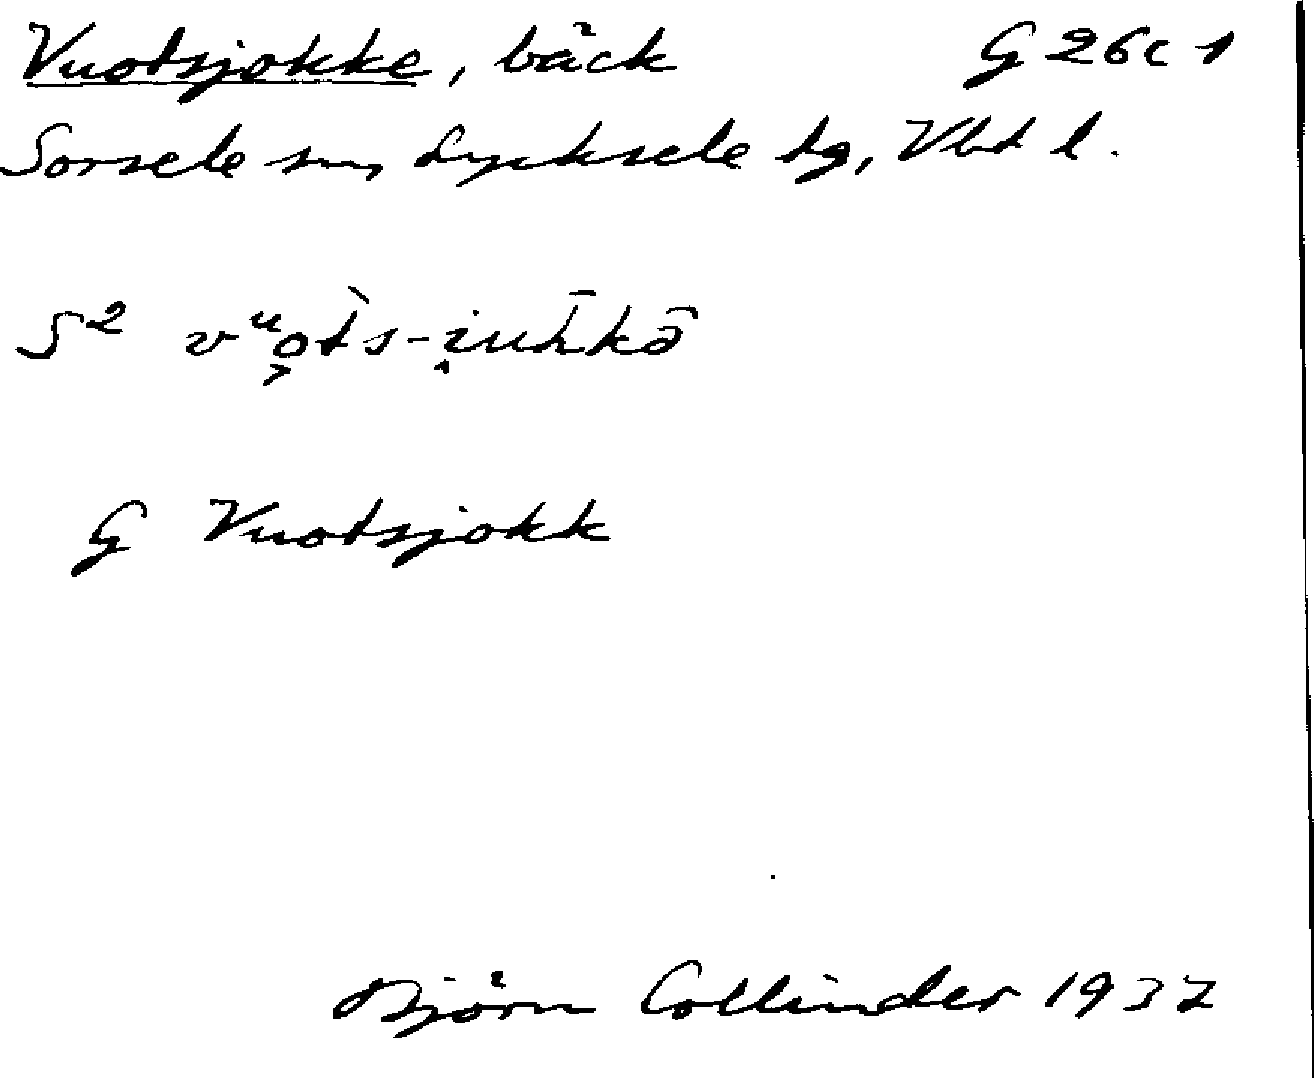 Vuotsjokke, bäck G 26c 1
Sorsele sn, Lycksele tg, Vbt l.
S² vᵘo̭t̀s-i̭uh̄kō̂
G Vuotsjokk
Björn Collinder 1937